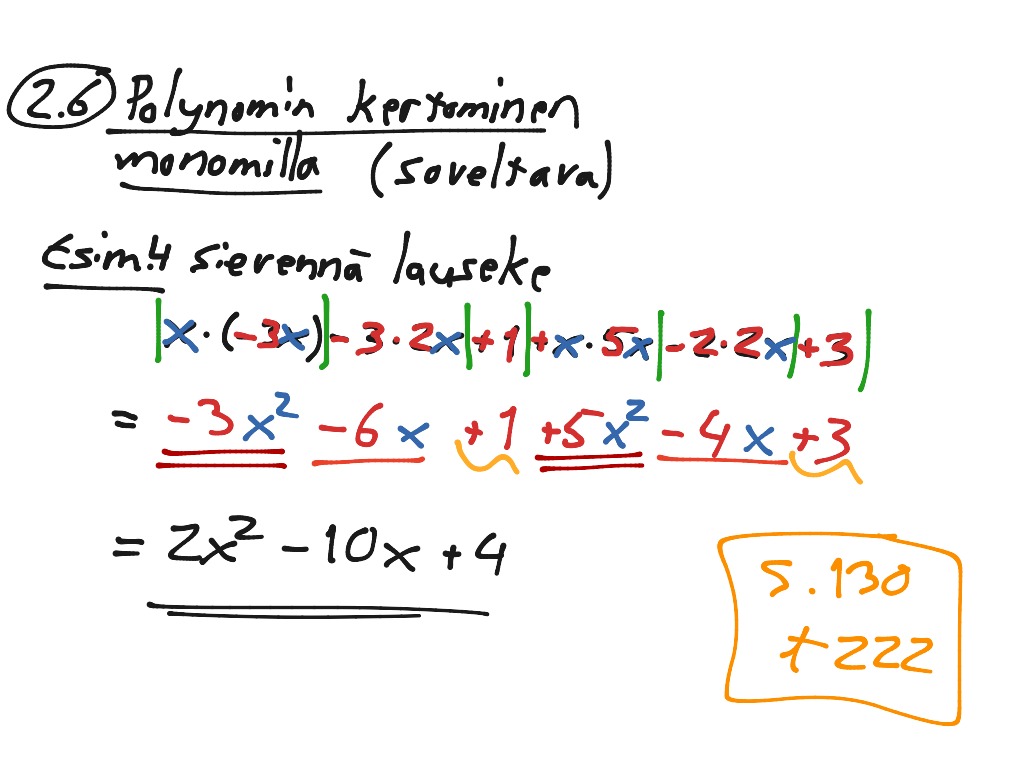 2.6 Polynomin kertominen
monomilla (soveltava)
Esim.4 Sievennä lauseke
|x·(-3x)|-3·2x|+1|+x·5x|-2·2x|+3|
= -3x² -6x +1 +5x² -4x +3
= 2x² -10x +4
S.130
t 222